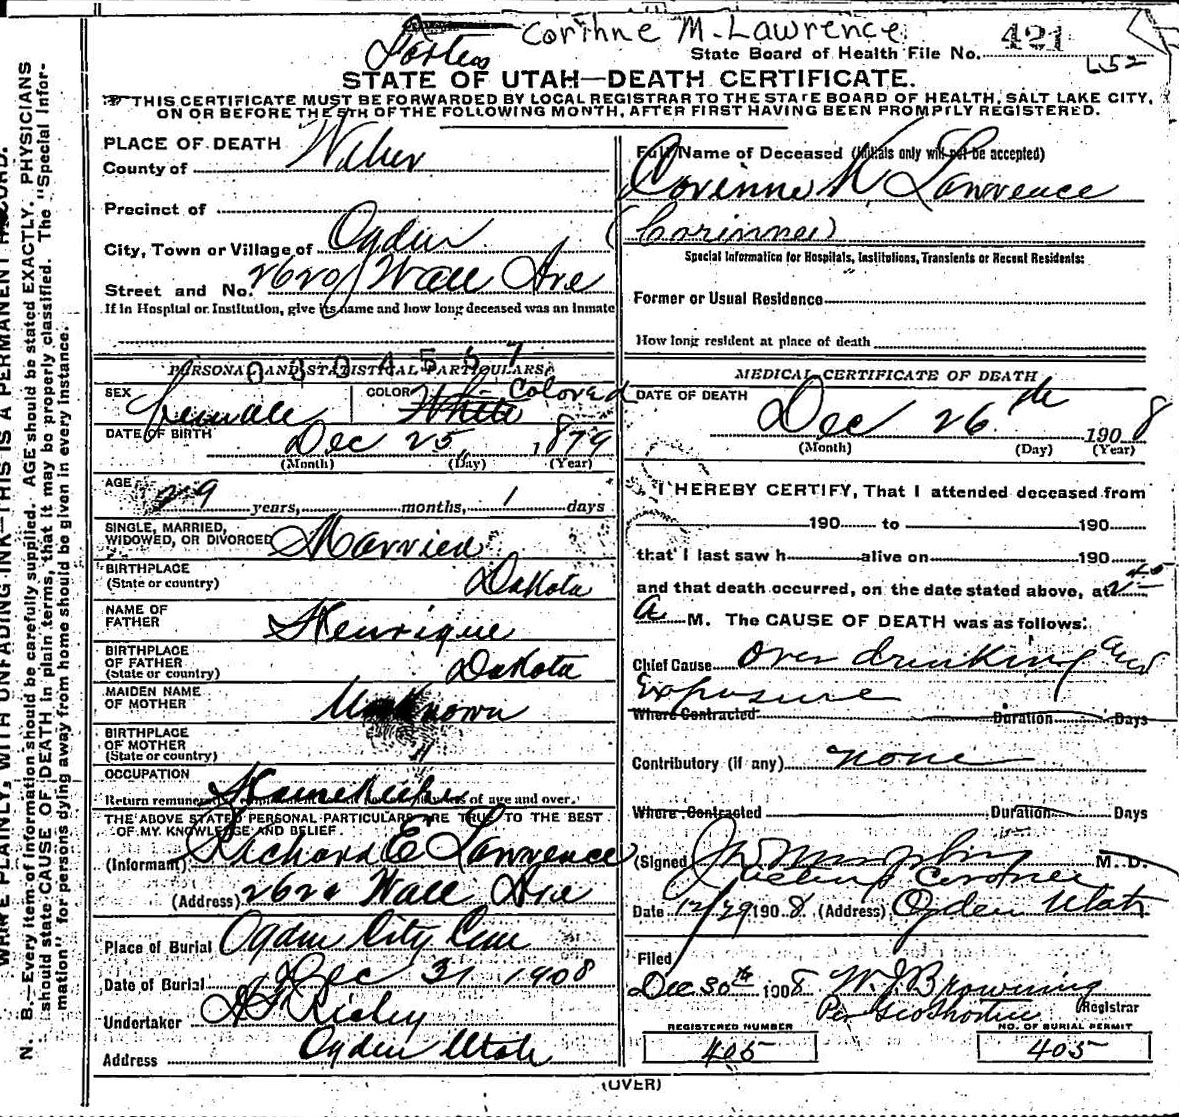 Corinne M. Lawrence
State Board of Health File No. 421
652
STATE OF UTAH—DEATH CERTIFICATE.
THIS CERTIFICATE MUST BE FORWARDED BY LOCAL REGISTRAR TO THE STATE BOARD OF HEALTH, SALT LAKE CITY,
ON OR BEFORE THE 5TH OF THE FOLLOWING MONTH, AFTER FIRST HAVING BEEN PROMPTLY REGISTERED.
PLACE OF DEATH
County of Weber
Precinct of
City, Town or Village of Ogden
Street and No. 2620 Wall Ave
If in Hospital or Institution, give its name and how long deceased was an inmate
Full Name of Deceased (Initials only will not be accepted)
Corinne M. Lawrence
(Corinne)
Special Information for Hospitals, Institutions, Transients or Recent Residents:
Former or Usual Residence
How long resident at place of death
PERSONAL AND STATISTICAL PARTICULARS
0304557
SEX Female COLOR White Colored
DATE OF BIRTH Dec 25, 1879
(Month) (Day) (Year)
AGE 29 years, months, 1 days
SINGLE, MARRIED,
WIDOWED, OR DIVORCED Married
BIRTHPLACE
(State or country) Dakota
NAME OF
FATHER Henrique
BIRTHPLACE
OF FATHER
(State or country) Dakota
MAIDEN NAME
OF MOTHER Unknown
BIRTHPLACE
OF MOTHER
(State or country) "
OCCUPATION
Housekeeper
Return remunerative of age and over.
THE ABOVE STATED PERSONAL PARTICULARS ARE TRUE TO THE BEST
OF MY KNOWLEDGE AND BELIEF.
(Informant) Richard E Lawrence
(Address) 2620 Wall Ave
Place of Burial Ogden City Cem
Date of Burial Dec 31 1908
Undertaker
Address Ogden Utah
MEDICAL CERTIFICATE OF DEATH
DATE OF DEATH
Dec 26th 1908
(Month) (Day) (Year)
I HEREBY CERTIFY, That I attended deceased from
190 to 190
that I last saw h alive on 190
and that death occurred, on the date stated above, at 2 45
A M. The CAUSE OF DEATH was as follows:
Chief Cause Over drinking and
Exposure
Where Contracted Duration Days
Contributory (if any) none
Where Contracted Duration Days
(Signed) J W Murphy M. D.
Acting Coroner
Date 12/29 1908 (Address) Ogden Utah
Filed
Dec 30th 1908 W. J. Browning
Per Geo Shorten Registrar
REGISTERED NUMBER NO. OF BURIAL PERMIT
405 405
(OVER)
WRITE PLAINLY, WITH UNFADING INK—THIS IS A PERMANENT RECORD.
N. B.—Every item of information should be carefully supplied. AGE should be stated EXACTLY. PHYSICIANS
should state CAUSE OF DEATH in plain terms, that it may be properly classified. The "Special Infor-
mation" for persons dying away from home should be given in every instance.